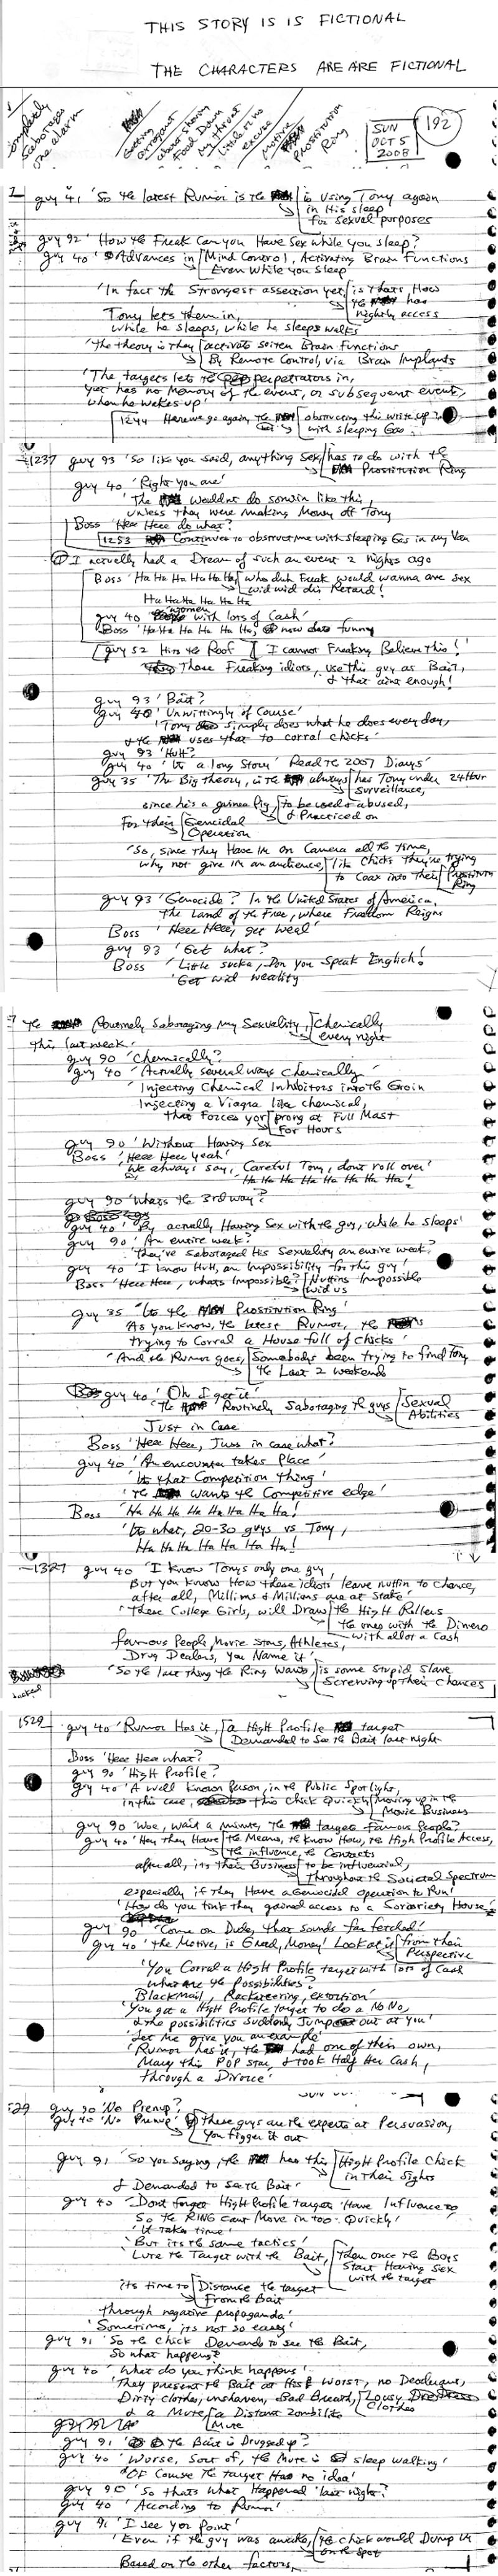 THIS STORY IS IS FICTIONAL
THE CHARACTERS ARE ARE FICTIONAL
completely
Sabotages
one alarm
Food Down
my throat
little or no
excuse
Motive
Prostitution
Ring
SUN
OCT 5
2008
192
guy 41 'So the latest Rumor is the is Using Tony again
in His sleep
for sexual purposes
guy 92 'How the Freak Can you Have Sex while you sleep?
guy 40 'Advances in Mind Control, Activating Brain Functions
Even while you sleep
'In fact the Strongest assertion yet, is thats How
the has
nightly access
Tony lets them in,
while he sleeps, while he sleeps walks
'The theory is they activate Brain Functions
By Remote Control, via Brain Implants
'The targets lets the perpetrators in,
yet has no Memory of the event, or subsequent event,
when he wakes up'
1244 Here we go again, the obstructing this write up?
with sleeping Gas
~1237 guy 93 'So like you said, anything sex, has to do with the
Prostitution Ring
guy 40 'Right you are'
'The wouldnt do somin like this,
unless they were making Money off Tony
Boss 'Hee Hee do what?
1253 Continues to obstruct me with sleeping Gas in my Van
I actually had a Dream of such an event 2 nights ago
Boss 'Ha Ha Ha Ha Ha Ha, who duh Freak would wanna ave sex
wid wid dis Retard!
Ha Ha Ha Ha Ha Ha
guy 40 women with lots of Cash'
Boss 'Ha Ha Ha Ha Ha Ha, now dats funny
guy 52 Hits the Roof I cannot Freaking Believe this!'
These Freaking idiots, use this guy as Bait,
& that aint enough!
guy 93 'Bait?
guy 40 'Unwittingly of Course'
'Tony simply does what he does every day,
& the uses that to corral chicks'
guy 93 'Huh?
guy 40 'Its a long Story' Read the 2007 Diarys'
guy 35 'The Big theory, is the always has Tony under 24 Hour
Surveillance,
since he's a guinea Pig, to be used & abused,
& Practiced on
For their Genocidal
Operation
'So, since they Have Im on Camera all the time,
why not give Im an audience, like Chicks they're trying
to Coax into their Prostitution
Ring
guy 93 'Genocide? In the United States of America,
The Land of the Free, where Freedom Reigns
Boss 'Heee Heee, get weal'
guy 93 'Get what?
Boss 'Little sucka, Don you Speak Englich!
'Get wid weality
the Routinely Sabotaging My Sexuality, Chemically
every night
this last week'
guy 90 'Chemically?
guy 40 'Actually several ways Chemically'
Injecting Chemical Inhibitors into the Groin
Injecting a Viagra like chemical,
that Forces your prong at Full Mast
For Hours
guy 90 'Without Having Sex
Boss 'Heee Heee yeah'
We always say, Careful Tony, dont roll over'
'Ha Ha Ha Ha Ha Ha Ha!
guy 90 'Whats the 3rd way?
guy 40 'By actually Having Sex with the guy, while he sleeps'
guy 90 'An entire week?
'They've Sabotaged His Sexuality an entire week?
guy 40 'I know Huh, an Impossibility for this guy'
Boss 'Heee Heee, whats Impossible? Nuttins Impossible
wid us
guy 35 'Its the Prostitution Ring'
'As you know, the latest Rumor, the
trying to Corral a House full of Chicks'
'And the Rumor goes, Somebodys been trying to find Tony
the Last 2 weekends
guy 40 'Oh I get it'
'The Routinely Sabotaging the guys Sexual
Abilities
Just in Case
Boss 'Heee Heee, Juss in case what?
guy 40 'An encounter takes Place'
'Its that Competition thing'
'the wants the Competitive edge'
Boss 'Ha Ha Ha Ha Ha Ha Ha Ha!
'Its what, 20-30 guys vs Tony,
Ha Ha Ha Ha Ha Ha Ha!
~1327 guy 40 'I know Tonys only one guy,
But you know How these idiots leave nuttin to chance,
after all, Millions & Millions are at Stake'
'These College Girls, will Draw the High Rollers
the ones with the Dinero
with allot a Cash
famous People, Movie Stars, Athletes,
Drug Dealers, You Name it'
'So the last thing the Ring Wants, is some Stupid Slave
Screwing up Their Chances
1529 guy 40 'Rumor Has it, a High Profile target
Demanded to See the Bait last night
Boss 'Heee Heee what?
guy 90 'High Profile?
guy 40 'A well known Person, in the Public Spotlight,
in this case, this chick Quickly Moving up in the
Movie Business
guy 90 'Woe, Wait a minute, the targets Famous People?
guy 40 'Hey they Have the Means, the Know How, the High Profile Access,
the influence, the Contacts
after all, its their Business to be influential,
throughout the Societal Spectrum
especially if they Have a Genocidal operation to Run'
'How do you tink they gained access to a Sorority House'
guy 90 'Come on Dude, that sounds far fetched'
guy 40 'the Motive, is Greed, Money! Look at it from their
Perspective
'You Corral a High Profile target with lots of Cash
what are the Possibilities?
Blackmail, Racketeering, extortion'
'You get a High Profile target to do a No No,
& the possibilities suddenly Jump out at you'
'Let me give you an example'
'Rumor has it, the had one of their own,
Marry this POP star, & took Half Her Cash,
through a Divorce'
guy 90 'No Prenup?
guy 40 'No Prenup' these guys are the experts at Persuasion,
you figger it out
guy 91 'So you saying, the has this High Profile Chick
in their Sights
& Demanded to see the Bait'
guy 40 'Dont forget High Profile targets Have Influence too
So the RING cant Move in too Quickly'
'It takes time'
'But its the same tactics'
Lure the Target with the Bait, then once the Boys
Start Having Sex
with the target
its time to Distance the target
From the Bait
through negative propaganda'
'Sometimes, its not so easy'
guy 91 'So the Chick Demands to see the Bait,
So what happens?
guy 40 'What do you think happens'
'They present the Bait at His Worst, no Deodorant,
Dirty clothes, unshaven, Bad Breath, Lousy
Clothes
& a Mute, a Distant Zombilike
Mute
guy 91 'the Bait is Drugged up?
guy 40 'Worse, Sort of, the Mute is sleep walking'
'OF Course the target Has no idea'
guy 90 'So thats what Happened last night?
guy 40 'According to Rumor'
guy 91 'I see yer Point'
'Even if the guy was awake, the chick would Dump im
on the spot
Based on the other factors,